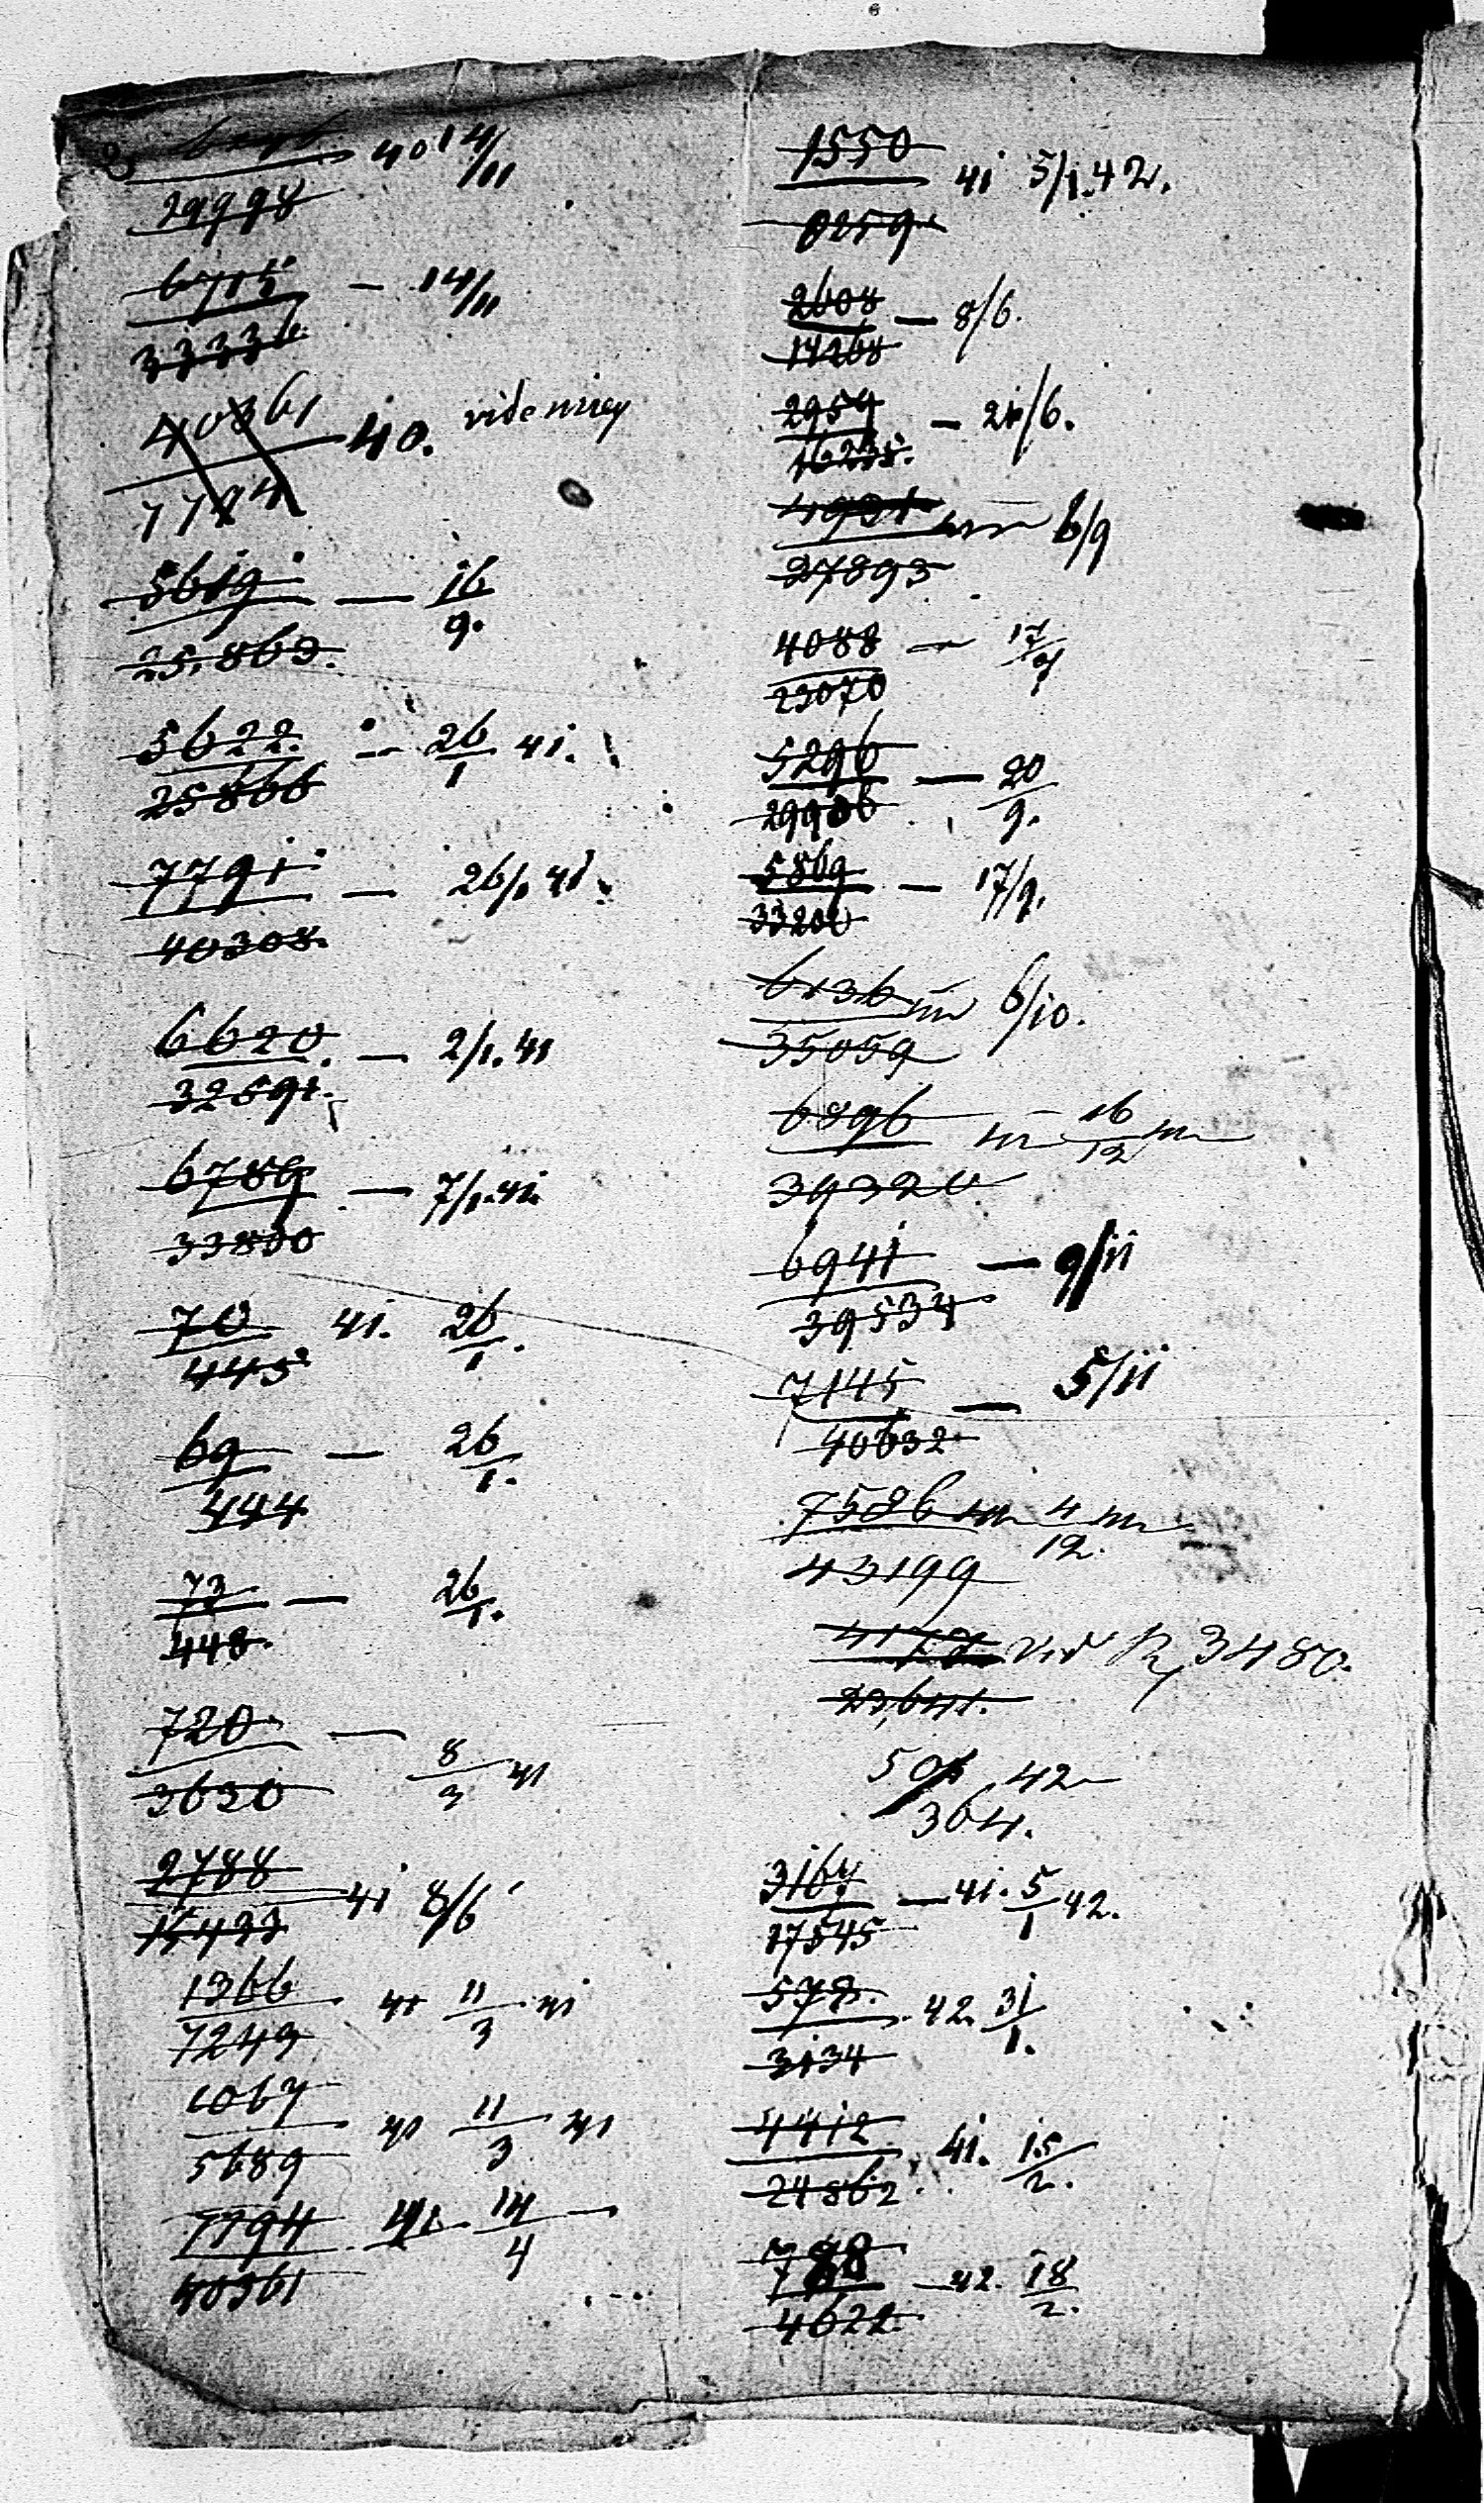 40 14/11
29998
6715 - 14/11
33336
40361 40.
7794
5619 — 16/9.
25,869.
5622. — 26/1 41.
25866
7791 — 26/1 41.
40308.
6620. — 2/1. 41
32591.
6789 — 7/1. 41.
33830
70 41. 26/1.
445
69 — 26/1.
444
73 — 26/1.
448.
720 — 8/3 41
3630
2788 41 8/6
15433
1366 41 11/3 41
7249
1067 41 11/3 41
5689
7794 41 14/4 —
40361
1550 41 5/1. 42.
8259
2608 — 8/6.
14268
2959 — 21/6.
16235.
6/9
27893
4088 — 17/9
23070
5296 — 20/9.
29906
5869 — 17/9.
33200
6136 6/10.
35059
6896 16/12
39320
6941 — 9/11
39534
7145 — 5/11
40632
7586 4/12
43199
3480.
23,641.
42
304.
3167 — 41. 5/1 42.
17545
578. 42. 31/1.
3134
4412 41. 15/2.
24862
788 — 42. 18/2.
4622.